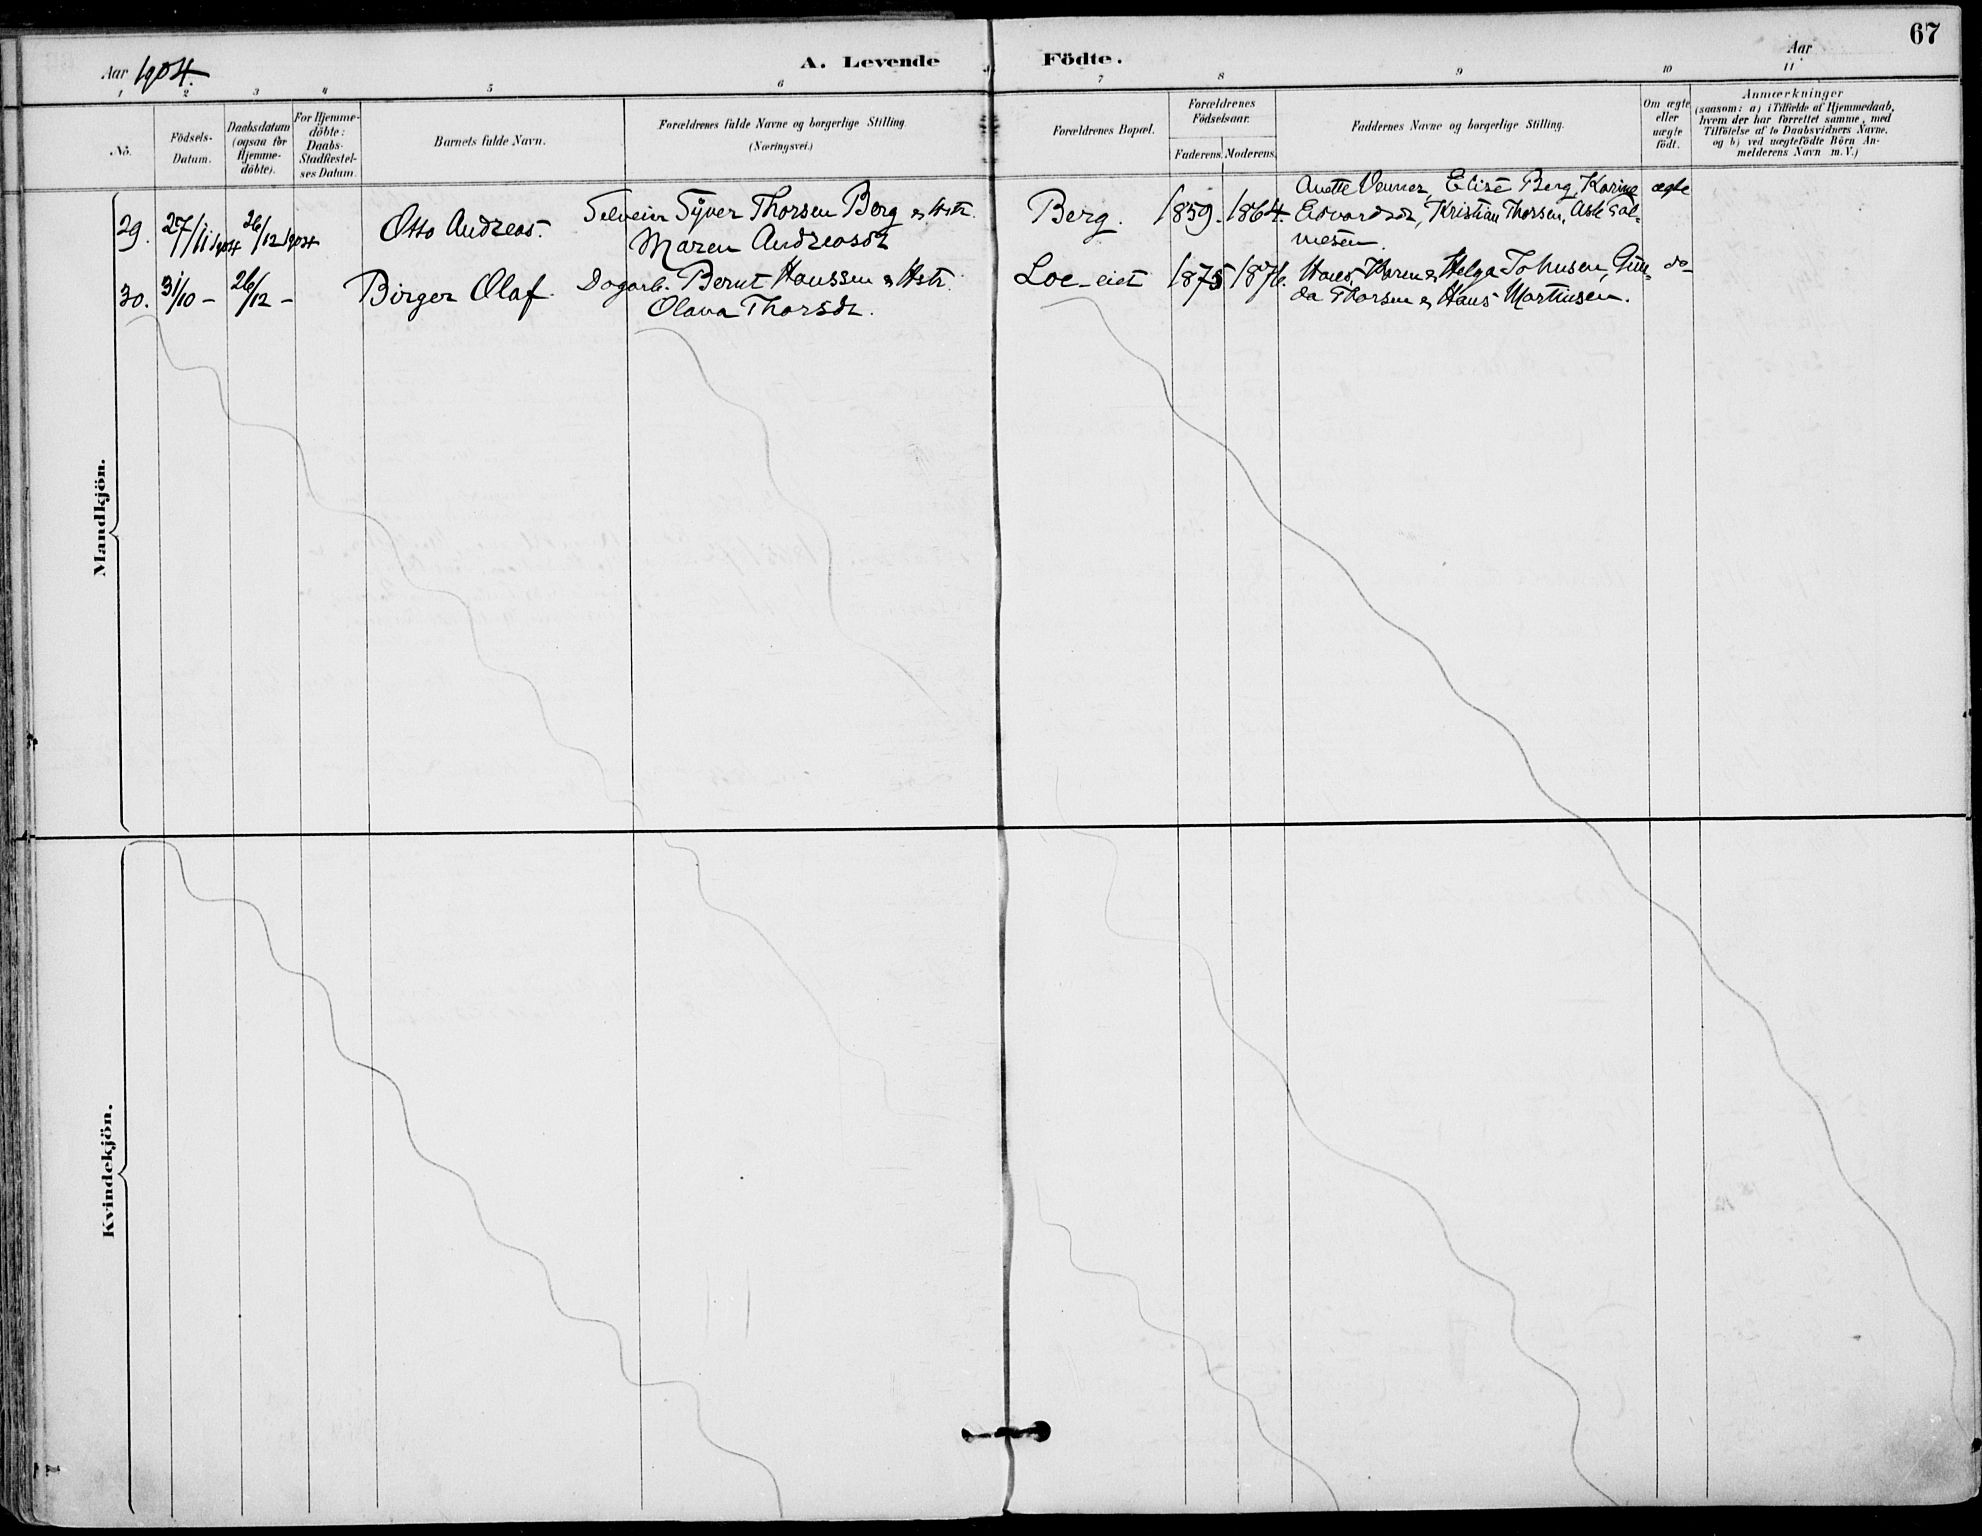 67
Aar 1904.
A. Levende Födte.
Aar
1 2 3 4 5 6 7 8 9 10 11
Nô.
Födsels-
Datum.
Daabsdatum
(ogsaa for
Hjemme-
döbte).
For Hjemme-
döbte:
Daabs-
Stadfæstel-
ses Datum.
Barnets fulde Navn.
Forældrenes fulde Navne og borgerlige Stilling
(Næringsvei.)
Forældrenes Bopæl.
Forældrenes
Födselsaar.
Faderens. Moderens.
Faddernes Navne og borgerlige Stilling.
Om ægte
eller
uægte
födt.
Anmærkninger
(saasom: a) i Tilfælde af Hjemmedaab,
hvem der har forrettet samme, med
Tilföielse af to Daabsvidners Navne,
og b) ved uægtefödte Börn An-
melderens Navn m. V.)
Mandkjön.
29. 27/11 1904 26/12 1904 Otto Andreas. Selveier Syver Thorsen Berg & Hstr.
Maren Andreasdr
Berg. 1859. 1864. Anette Berg, Karine ægte
Kristian Thorsen,
30. 31/10 - 26/12 - Birger Olaf. Dagarb. Bernt Hanssen & Hstr.
Olava Thorsdr.
Loe-eiet 1875 1876. Hans, Karen & Helga Johnsen, Gun- do-
da Thorsen & Hans Martinsen.
Kvindekjön.